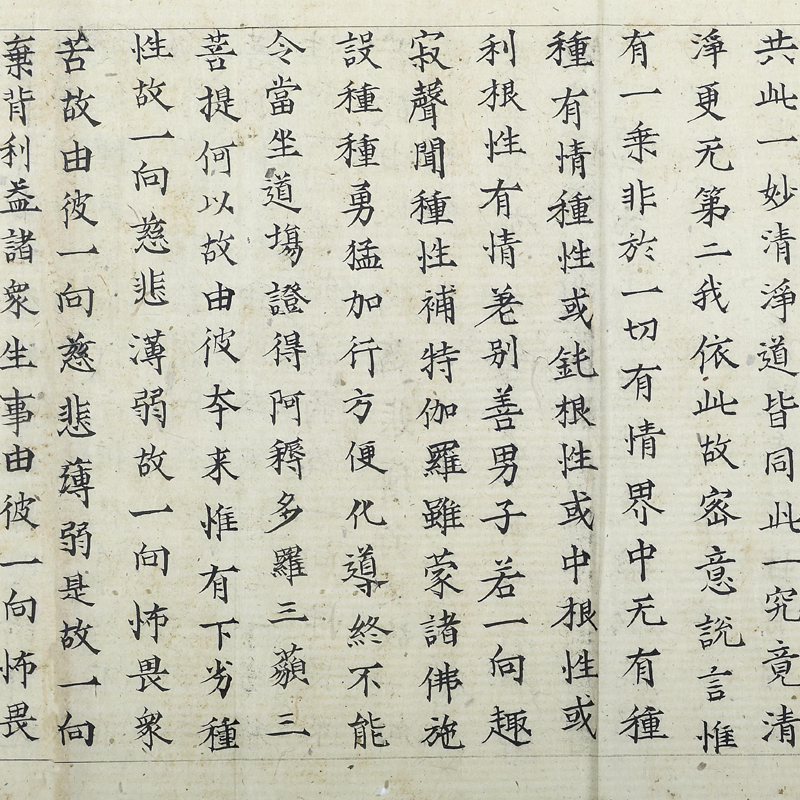 共此一妙清淨道皆同此一究竟清
淨更无第二我依此故密意説言惟
有一乗非於一切有情界中无有種
種有情種性或鈍根性或中根性或
利根性有情差别善男子若一向趣
寂聲聞種性補特伽羅雖蒙諸佛施
設種種勇猛加行方便化導終不能
令當坐道場證得阿耨多羅三藐三
菩提何以故由彼夲来惟有下劣種
性故一向慈悲薄弱故一向怖畏衆
苦故由彼一向慈悲薄弱是故一向
棄背利益諸衆生事由彼一向怖畏